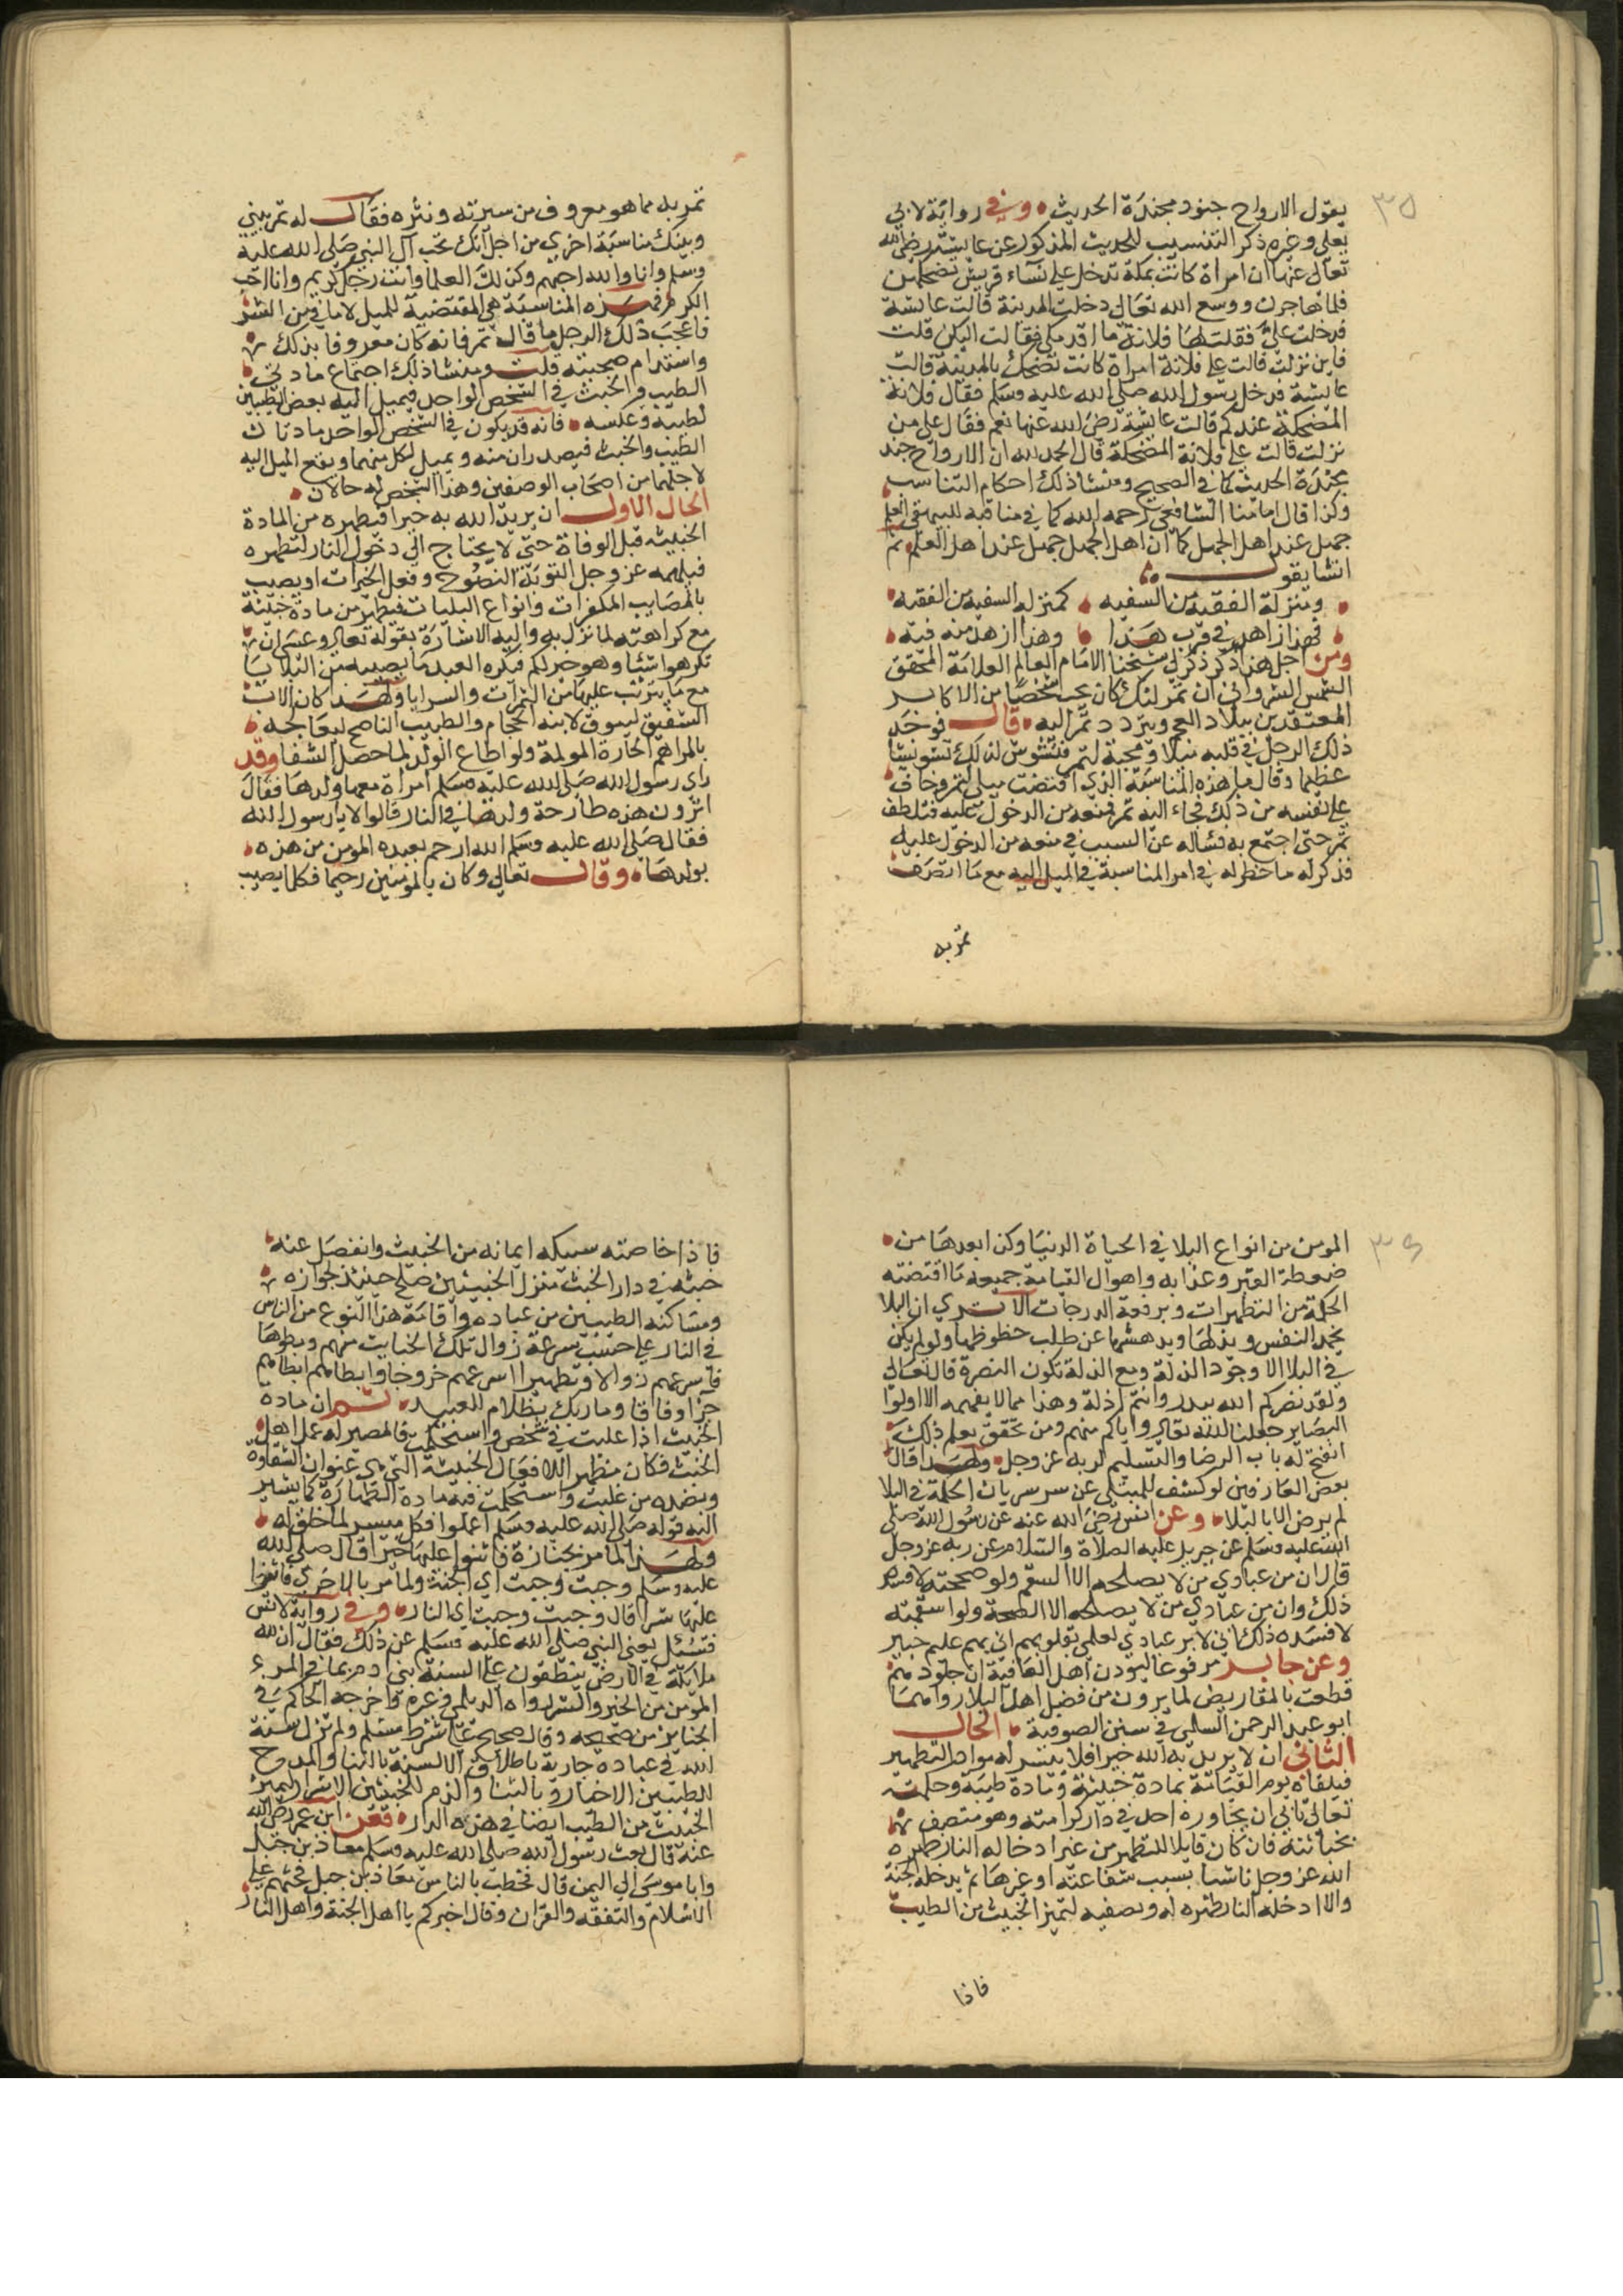 ٣٥
يقول الارواح جنود مجندة الحديث وفي رواية لابي
يعلى وغيره ذكر التنسيب للحديث المذكور عن عايشة رضي الله
تعالى عنها ان امراة كانت بمكة تدخل على نساء قريش تضحكهن
فلما هاجرن ووسع الله تعالى دخلت المدينة قالت عايشة
فدخلت علي فقلت لها فلانة ما اقدمك فقالت اليكن قلت
فاين نزلت قالت على فلانة امراة كانت تضحك بالمدينة قالت
عايشة فدخل رسول الله صلى الله عليه وسلم فقال فلانة
المضحكة عندكم قالت عايشة رضي الله عنها نعم فقال على من
نزلت قالت على فلانة المضحكة قال الحمد لله ان الارواح جند
مجندة الحديث كما في الصحيح ومنشا ذلك احكام التناسب
وكذا قال امامنا الشافعي رحمه الله كما في مناقبه للبيهقي العلم
جميل عند اهل الجميل كما ان اهل الجميل جميل عند اهل العلم ثم
انشا يقول
ومنزلة الفقيه من السفيه كمنزلة السفيه من الفقيه
فهذا زاهد في قرب هذا وهذا ازهد منه فيه
ومن اجل هذا ذكر لي شيخنا الامام العالم العلامة المحقق
الشمس الشرواني ان تمرلنك كان يحب شخصا من الاكابر
المعتقدين ببلاد العجم ويتردد تمر اليه قال فوجد
ذلك الرجل في قلبه ميلا ومحبة لتمر فتشوش لذلك تشويشا
عظيما وقال ما هذه المناسبة الذي اقتضت ميلي لتمر وخاف
على نفسه من ذلك فجاء اليه تمر فمنعه من الدخول عليه فتلطف
تمر حتى اجتمع به فساله عن السبب في منعه من الدخول عليه
فذكر له ما خطر له في امر المناسبة في الميل اليه مع ما اتصف
تمر به
تمر به مما هو معروف من سيرته وشره فقال له تمر بيني
وبينك مناسبة اخرى من اجل انك تحب آل النبي صلى الله عليه
وسلم وانا والله احبهم وكذلك العلما وانت رجل كريم وانا احب
الكرم فهذه المناسبة هي المقتضية للميل لا ما في من الشر
فاعجب ذلك الرجل ما قال تمر فانه كان معروفا بذلك
واستدام صحبته قلت ومنشا ذلك اجتماع مادتي
الطيب والخبث في الشخص الواحد فيميل اليه بعض الطيبين
لطيبه وعكسه فانه قد يكون في الشخص الواحد مادتان
الطيب والخبث فيصدران منه ويميل لكل منهما ويقع الميل اليه
لاجلهما من اصحاب الوصفين وهذا الشخص له حالان
الحال الاول ان يريد الله به خيرا فيطهره من المادة
الخبيثة قبل الوفاة حتى لا يحتاج الى دخول النار لتطهره
فيلهمه عز وجل التوبة النصوح وفعل الخيرات او يصيب
بالمصايب المكفرات وانواع البليات فيطهر من مادة خبيثة
مع كراهته لما نزل به واليه الاشارة بقوله تعالى وعسى ان
تكرهوا شيئا وهو خير لكم فيكره العبد ما يصيبه من البلايا
مع ما يترتب عليها من الثمرات والسرايا ولهذا كان الاب
الشفيق ليسوق لابنه الحجام والطبيب الناصح ليعالجه
بالمراهم الحارة المولمة ولو اطاع الولد لما حصل الشفا وقد
راى رسول الله صلى الله عليه وسلم امراة معها ولدها فقال
اترون هذه طارحة ولدها في النار قالوا لا يا رسول الله
فقال صلى الله عليه وسلم الله ارحم بعبده المومن من هذه
بولدها وقال تعالى وكان بالمومنين رحيما فكلما يصيب
٣٦
المومن من انواع البلا في الحياة الدنيا وكذا بعدها من
ضغطة القبر وعذابه واهوال القيامة جميعه ما اقتضته
الحكمة من التطهيرات وبرفعة الدرجات الا ترى ان البلا
يخمد النفس ويذلها ويدهشها عن طلب حظوظها ولو لم يكن
في البلا الا وجود الذلة ومع الذلة تكون النصرة قال تعالى
ولقد نصركم الله ببدر وانتم اذلة وهذا مما لا يفهمه الا اولوا
البصاير جعلنا الله تعالى واياكم منهم ومن تحقق بعلم ذلك
انفتح له باب الرضا والتسليم لربه عز وجل ولهذا قال
بعض العارفين لو كشف للمبتلى عن سر سريان الحكمة في البلا
لم يرض الا بالبلا وعن انس رضي الله عنه عن رسول الله صلى
الله عليه وسلم عن جبريل عليه الصلاة والسلام عن ربه عز وجل
قال ان من عبادي من لا يصلحه الا السقم ولو صححته لافسده
ذلك وان من عبادي من لا يصلحه الا الصحة ولو اسقمته
لافسده ذلك اني لادبر عبادي لعلمي بقلوبهم اني بهم عليم خبير
وعن جابر مرفوعا ليودن اهل العافية ان جلودهم
قطعت بالمقاريض لما يرون من فضيل اهل البلا رواهما
ابو عبد الرحمن السلمي في سنن الصوفية الحال
الثاني ان لا يريد به الله خيرا فلا ييسر له مواد التطهير
فيلقاه يوم القيامة بمادة خبيثة ومادة طيبة وحكمته
تعالى تابى ان يجاوره احد في دار كرامته وهو متصف
بخبائثه فان كان قابلا للتطهر من غير ادخاله النار طهره
الله عز وجل ناشيا بسبب شفاعته او غيرها ثم يدخله الجنة
والا ادخله النار طهره له وتصفيه لتميز الخبيث من الطيب
فاذا
فاذا خاصته سبيكه ايمانه من الخبيث وانفصل عنه
خبثه في دار الخبث منزل الخبيثين صلح حينئذ لجوازه
ومشاكنه الطيبين من عباده واقامة هذا النوع من الناس
في النار على حسب سرعة زوال تلك الخبايث منهم وبطوها
فاسرعهم زوالا وتطهيرا اسرعهم خروجا وابطاهم ابطاهم
جزا وفاقا وما ربك بظلام للعبيد ثم ان مادة
الخبيث اذا غلبت في شخص واستحكمت فالمصير له عمل اهل
الخبث فكان مظهر اللافعال الخبيثة التي هي عنوان الشقاوة
وبضده من غلبت واستحكمت فيه مادة الطهارة كما يشير
اليه قوله صلى الله عليه وسلم اعملوا فكل ميسر لما خلق له
ولهذا لما مر بجنازة فاثنوا عليها خيرا قال صلى الله
عليه وسلم وجبت وجبت اي الجنة ولما مر بالاخرى فاثنوا
عليها شرا قال وجبت وجبت اي النار وفي رواية لانس
فسئل يعني النبي صلى الله عليه وسلم عن ذلك فقال ان لله
ملايكة في الارض ينطقون على السنة بني ادم بما في المرء
المومن من الخير والشر رواه الديلمي وغيره واخرجه الحاكم في
الجنايز من صحيحه وقال صحيح على شرط مسلم ولم تزل سنة
الله في عباده جارية باطلاق الالسنة بالثنا والمدح
للطيبين الاخيار وبالثنا والذم للخبيثين الاشرار ليميز
الخبيث من الطيب ايضا في هذه الدار فعن ابن عمر رضي الله
عنه قال بعث رسول الله صلى الله عليه وسلم معاذ بن جبل
وابا موسى الى اليمن قال فخطب بالناس معاذ بن جبل فحثهم على
الاسلام والتفقه والقران وقال اخبركم يا اهل الجنة واهل النار